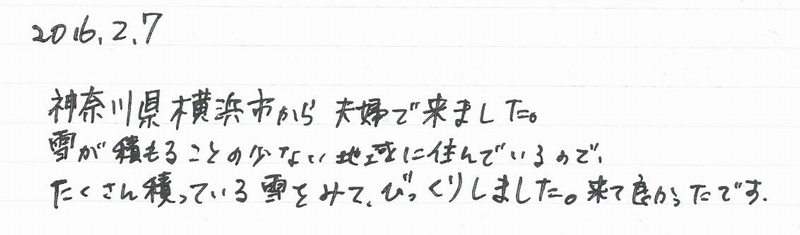 2016.2.7
神奈川県横浜市から夫婦で来ました。
雪が積もることの少ない地域に住んでいるので、
たくさん積っている雪をみて、びっくりしました。来て良かったです.